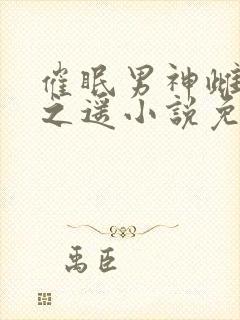 催眠男神雌
之遥小説免
禹臣